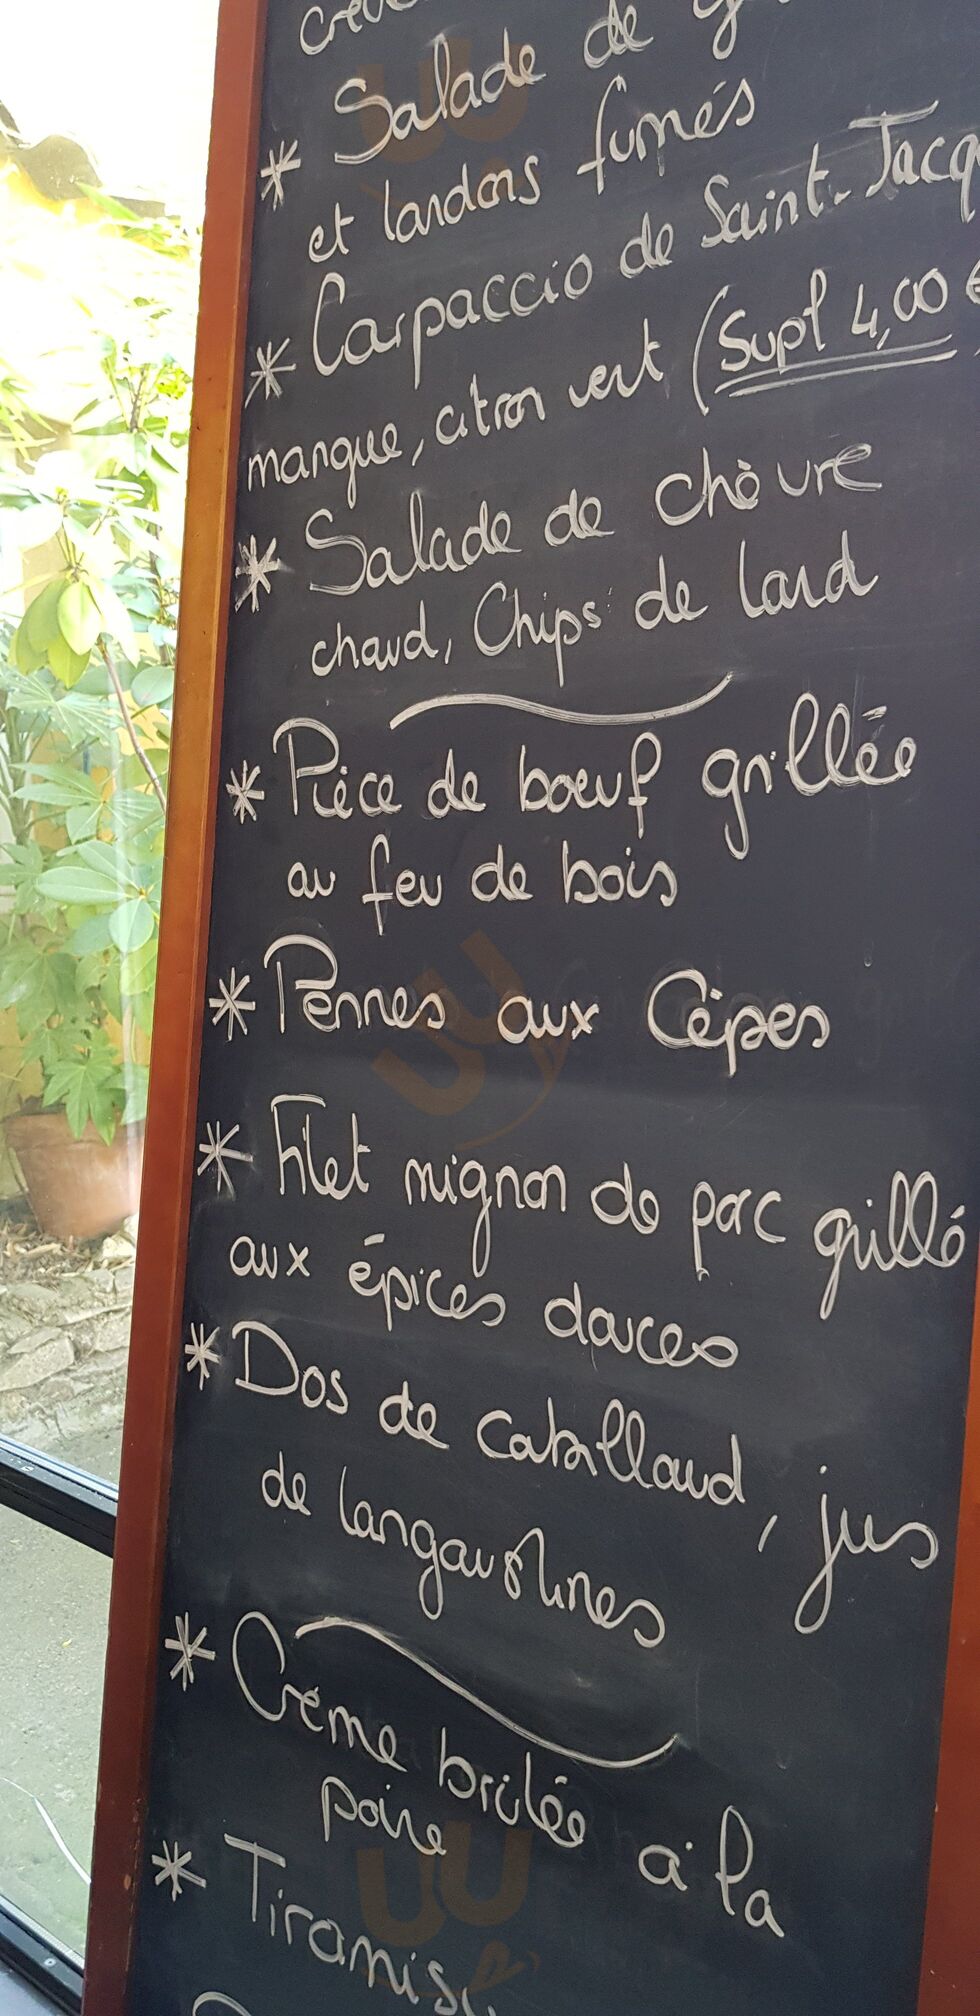 * Salade de
et lardons fumés
* Carpaccio de Saint-Jacq
mangue, citron vert (Supl 4,00 €
* Salade de chèvre
chaud, Chips de lard
* Pièce de boeuf grillée
au feu de bois
* Pennes aux Cèpes
* Filet mignon de porc grillé
aux épices douces
* Dos de cabillaud, jus
de langoustines
* Crème brûlée à la
poire
* Tiramisu